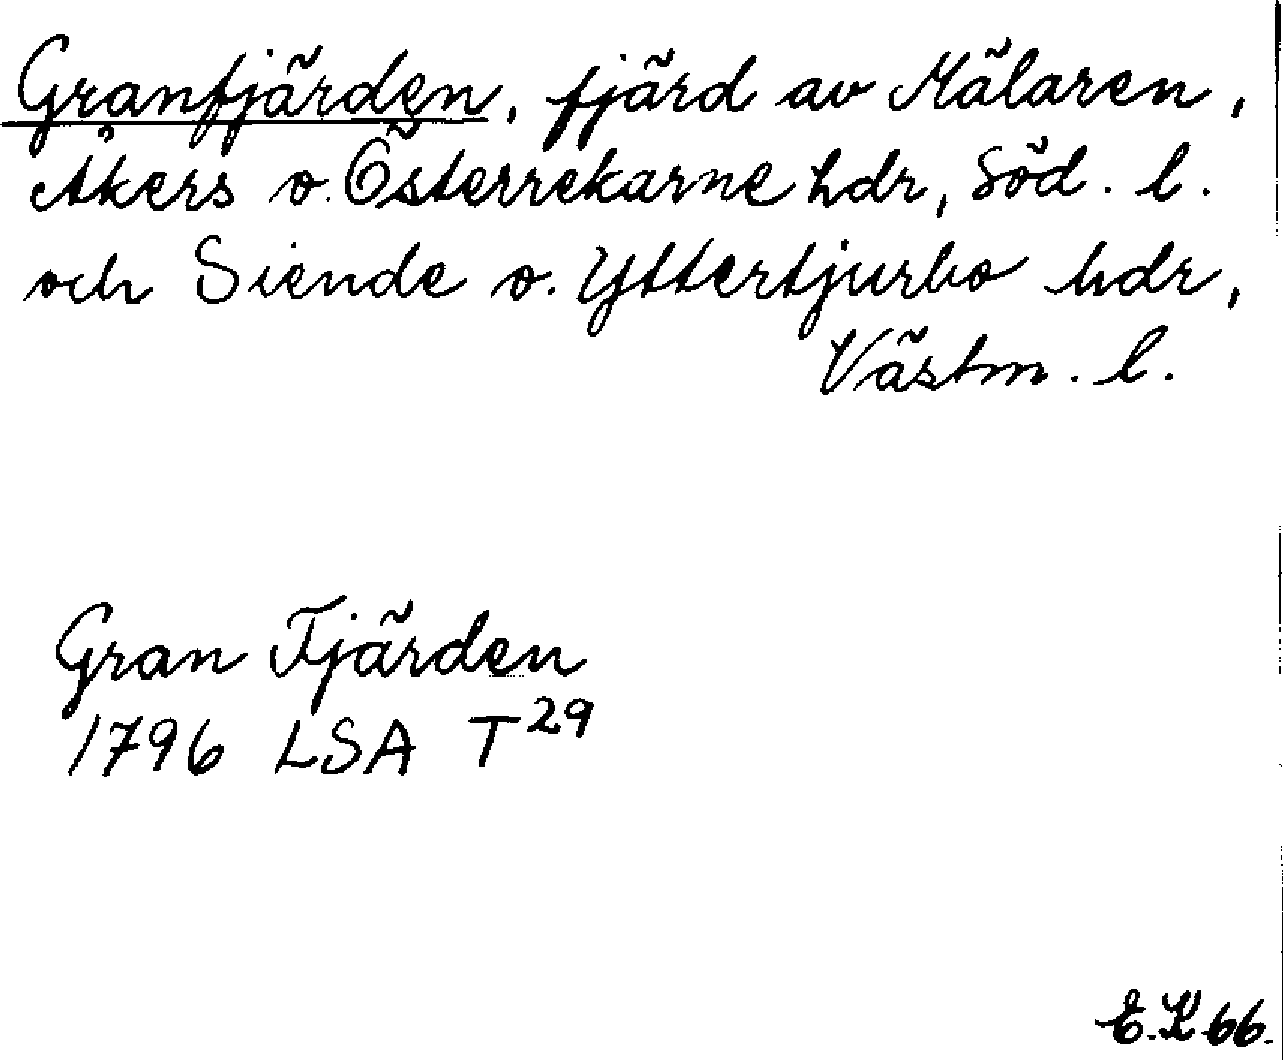 Granfjärden, fjärd av Mälaren,
Åkers o. Österrekarne hdr, Söd. l.
och Siende o. Yttertjurbo hdr,
Västm. l.
Gran Fjärden
1796 LSA T29
E.K 66.